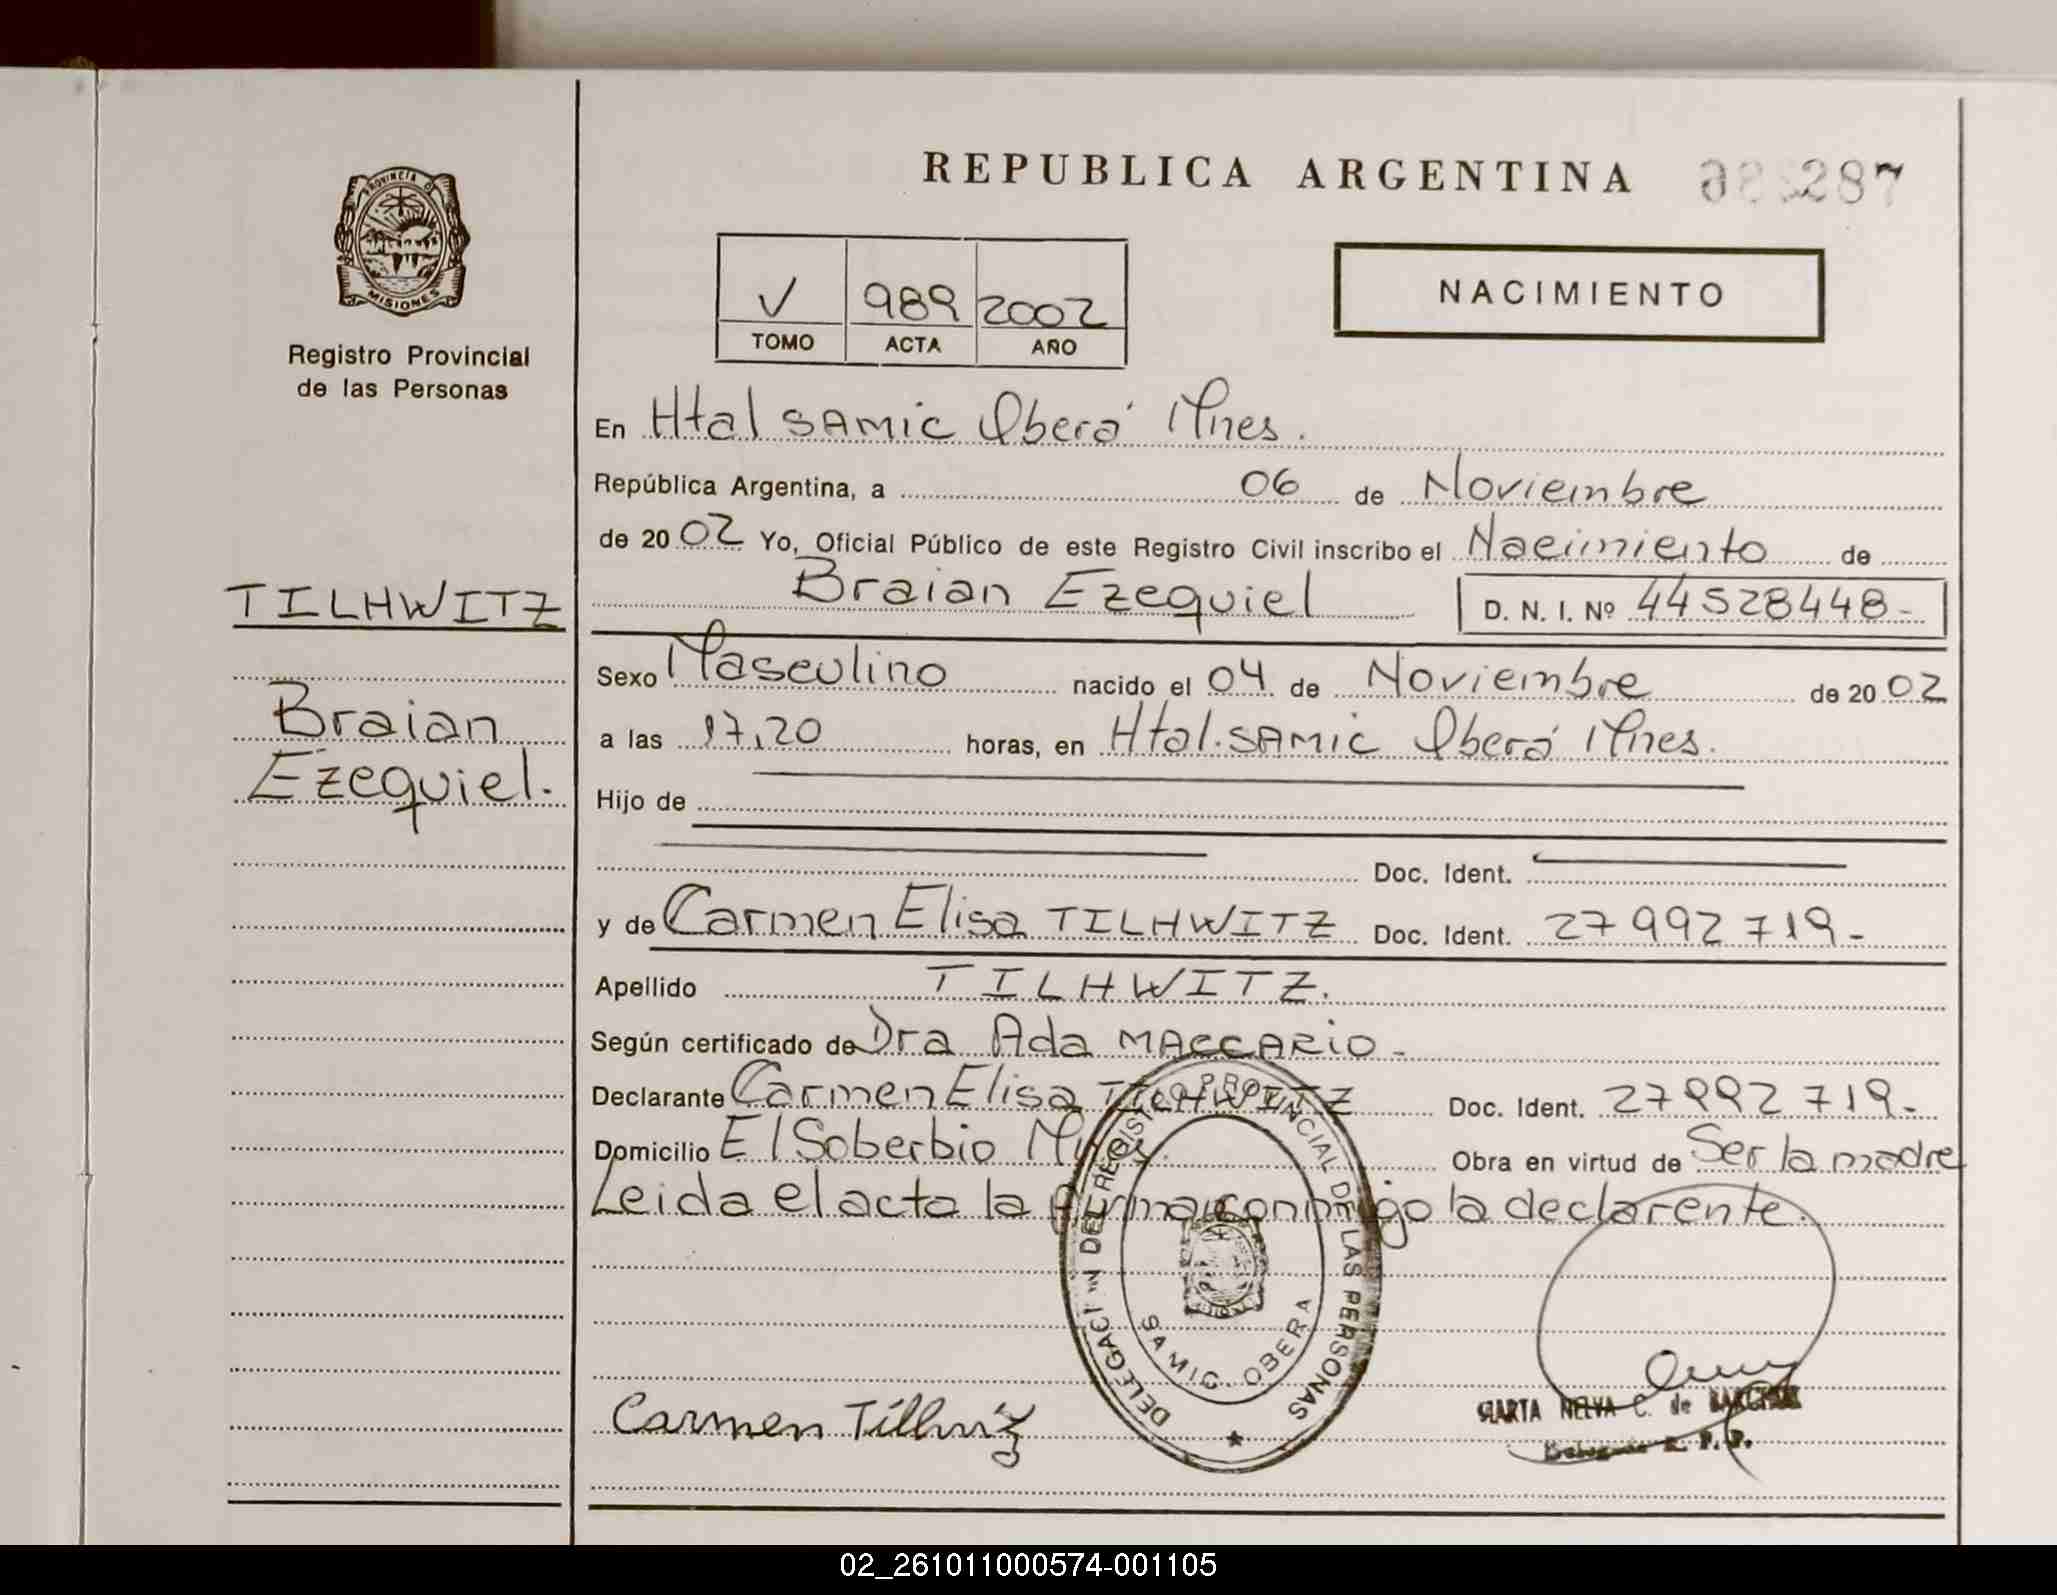 REPUBLICA ARGENTINA
287
PROVINCIA D
MISIONES
Registro Provincial
de las Personas
V 989 2002
TOMO ACTA AÑO
NACIMIENTO
En Htal SAMIC Oberá Mnes.
República Argentina, a 06 de Noviembre
de 2002 Yo, Oficial Público de este Registro Civil inscribo el Nacimiento de
Braian Ezequiel D. N. I. Nº 44528448-
TILHWITZ
Braian
Ezequiel.
Sexo Masculino nacido el 04 de Noviembre de 2002
a las 17,20 horas, en Htal. SAMIC Oberá Mnes.
Hijo de
Doc. Ident.
y de Carmen Elisa TILHWITZ Doc. Ident. 27992719-
Apellido TILHWITZ.
Según certificado de Dra Ada MACCARIO-
Declarante Carmen Elisa TILHWITZ Doc. Ident. 27992719-
Domicilio El Soberbio Mnes. Obra en virtud de Ser la madre
Leida el acta la firma conmigo la declarente.
DELEGACI N DEL REGISTRO PROVINCIAL DE LAS PERSONAS
SAMIC OBERA
Carmen Tilhwiz
MARTA NELVA C. de
R. P. P.
02_261011000574-001105